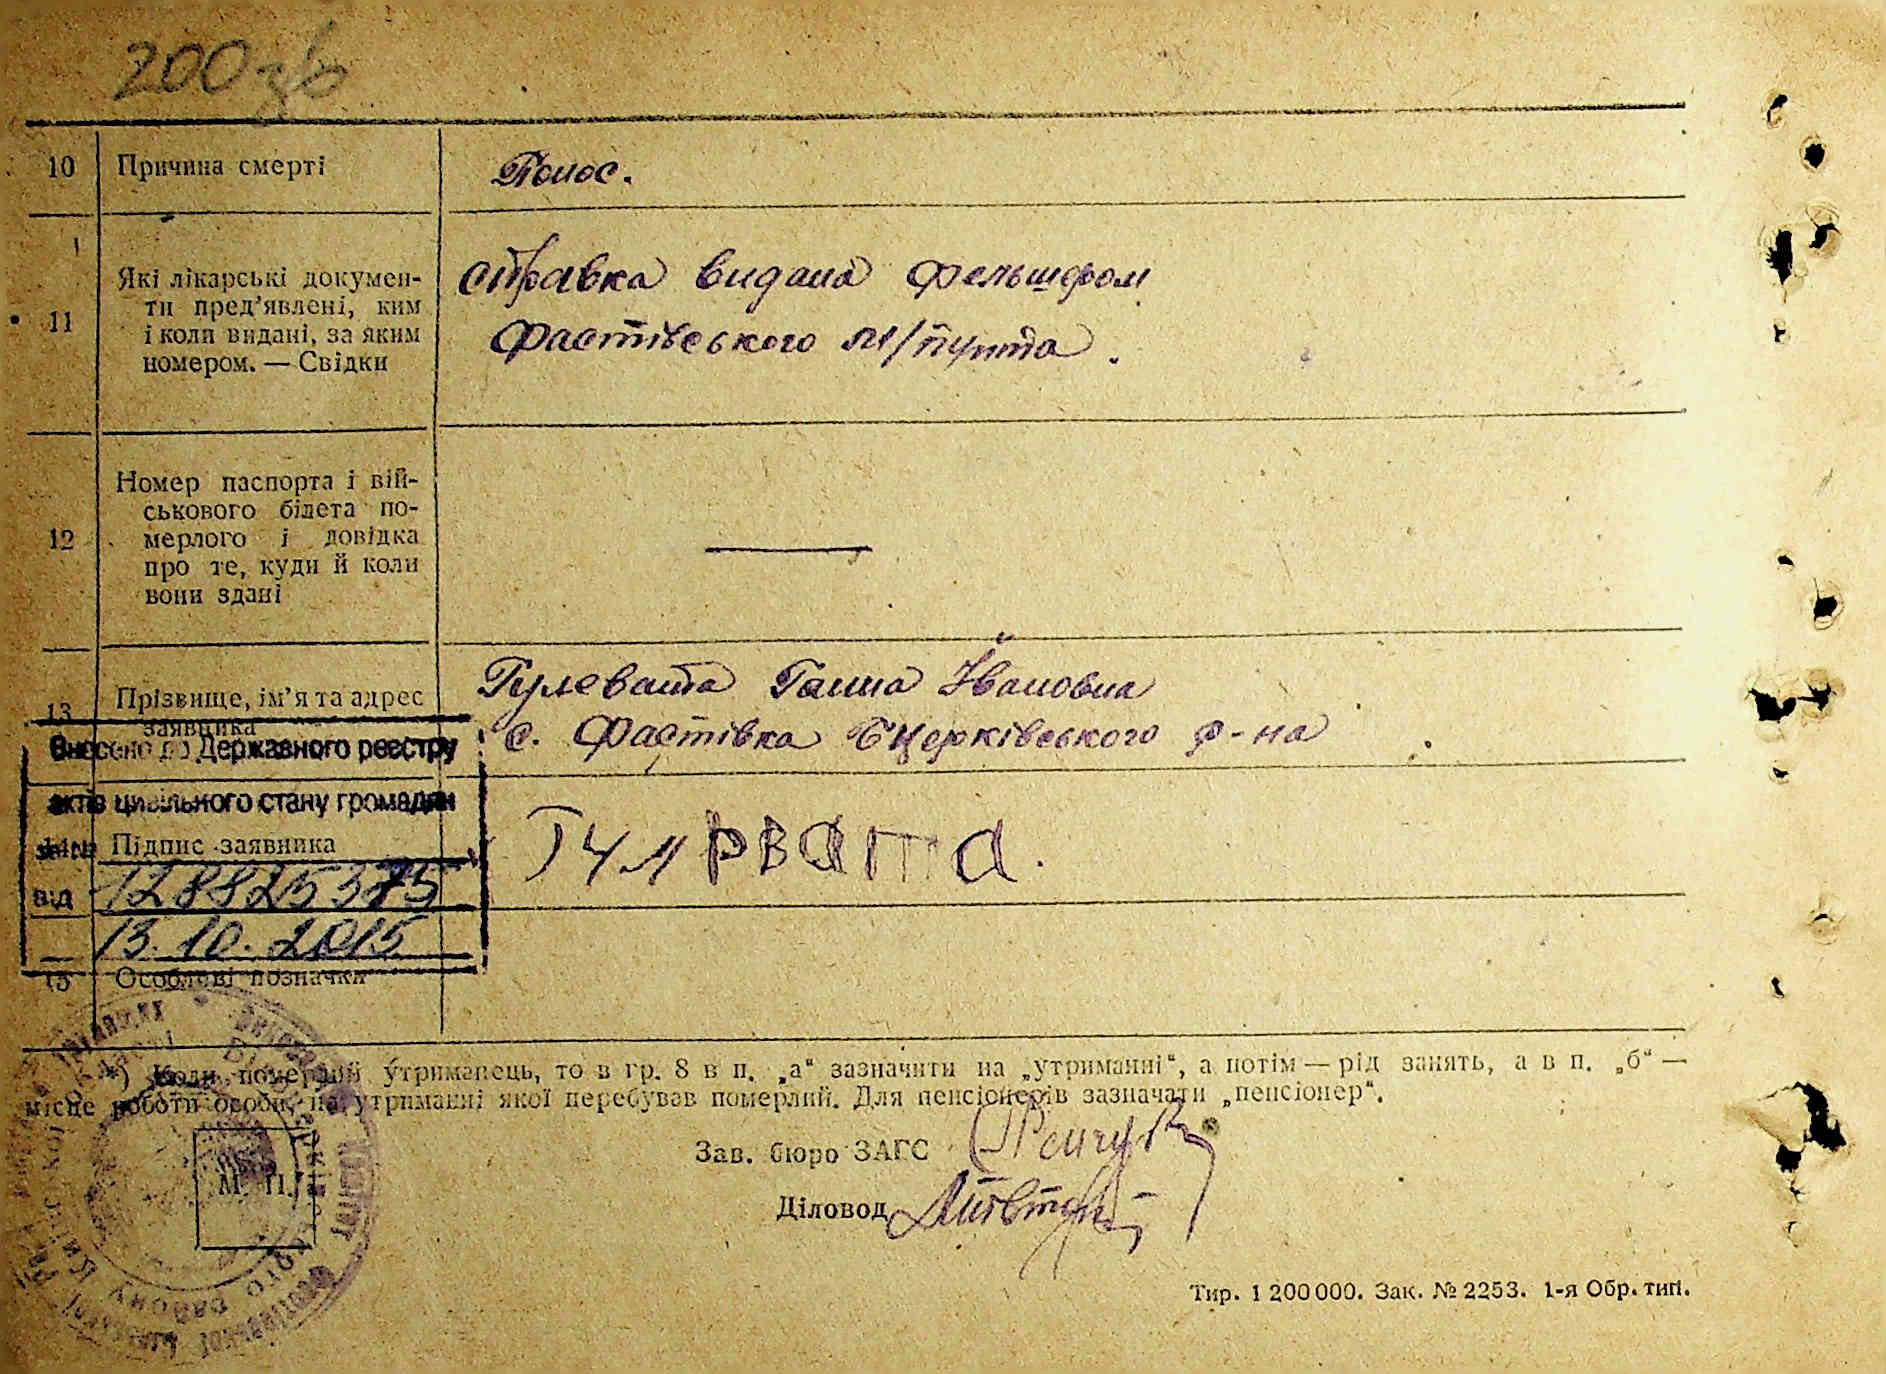 200 зв
10 Причина смерті
Понос.
11 Які лікарські докумен-
ти пред'явлені, ким
і коли видані, за яким
номером. — Свідки
справка видана фельшером
Фастівського м/пункта.
12 Номер паспорта і вій-
ськового білета по-
мерлого і довідка
про те, куди й коли
вони здані
—
13 Прізвище, ім'я та адрес
заявника
Гулевата Ганна Івановна
с. Фастівка Бцерківського р-на
Внесено до Державного реєстру
актів цивільного стану громадян
Підпис заявника
Гулрвата.
від 12882537
13.10.2015
15 Особливі позначки
*) Коли померлий утриманець, то в гр. 8 в п. „а“ зазначити на „утриманні“, а потім — рід занять, а в п. „б“ —
місце роботи особи, на утриманні якої перебував померлий. Для пенсіонерів зазначати „пенсіонер“.
Зав. бюро ЗАГС
М. П.
Діловод
Тир. 1 200 000. Зак. № 2253. 1-я Обр. тип.